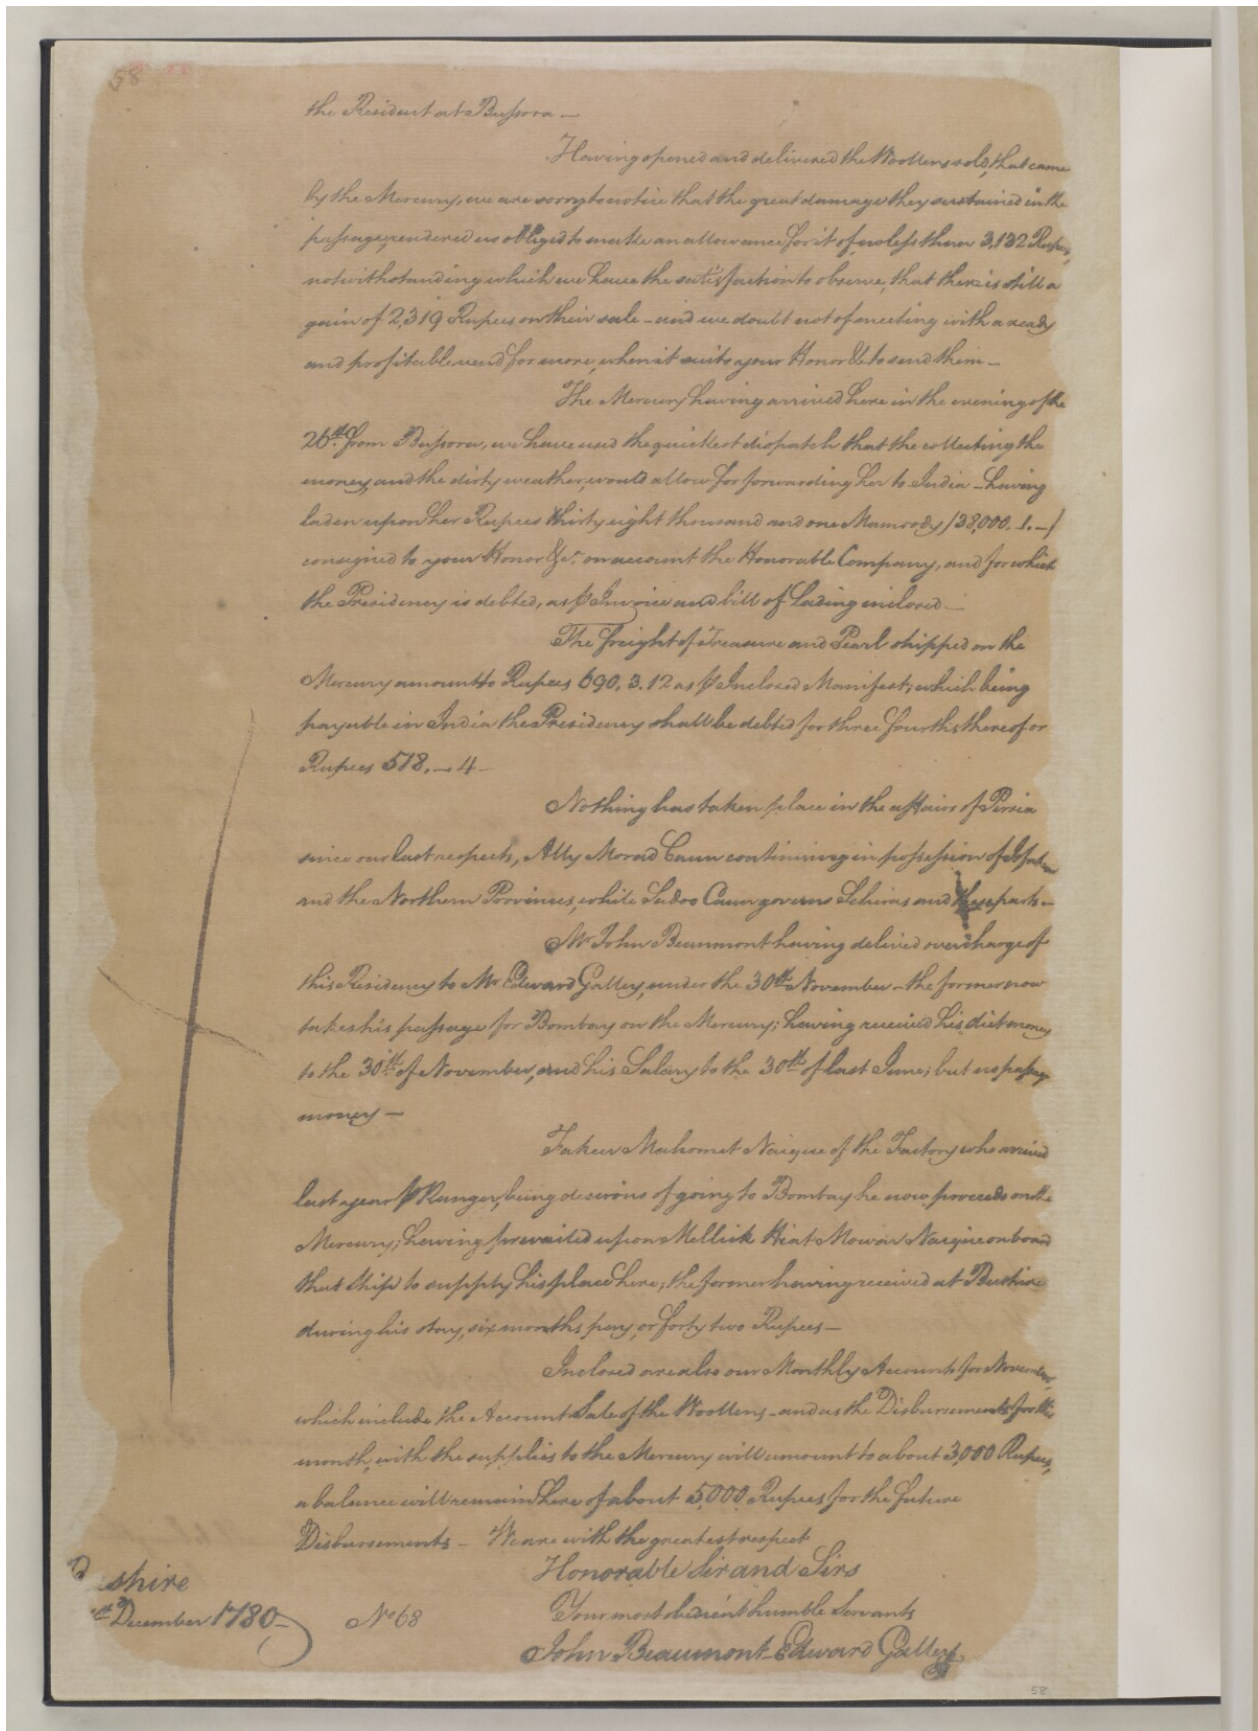 58
the Resident at Bussora —
Having opened and delivered the Woollens sold, that came
by the Mercury, we are sorry to notice that the great damage they sustained in the
passage, rendered us obliged to make an allowance for it of no less than 3,132 Rupees,
notwithstanding which we have the satisfaction to observe, that there is still a
gain of 2,319 Rupees on their sale – and we doubt not of meeting with a ready
and profitable vend for more, when it suits your Honor &c to send them —
The Mercury having arrived here in the evening of the
26th from Bussora, we have used the quickest dispatch that the collecting the
money, and the dirty weather, would allow for forwarding her to India – having
laden upon her Rupees thirty eight thousand and one Mamoody /38,000. 1. –/
consigned to your Honor &c. on account the Honorable Company, and for which
the Presidency is debted, as P Invoice and bill of Lading inclosed —
The freight of Treasure and Pearl shipped on the
Mercury amounts to Rupees 690. 3. 12 as P Inclosed Manifest; which being
payable in India the Presidency shall be debted for three fourths thereof or
Rupees 518. – 4 –
Nothing has taken place in the affairs of Persia
since our last respects, Ally Morad Caun continuing in possession of
and the Northern Provinces, while Sadoo Caun governs Schiras and these parts —
Mr John Beaumont having delived over charge of
this Residency to Mr Edward Galley, under the 30th November – the former now
takes his passage for Bombay on the Mercury; having received his diet money
to the 30th of November, and his Salary to the 30th of last June; but no passage
money —
Fakeer Mahomet Naique of the Factory who arrived
last year P Ranger, being desirous of going to Bombay he now proceeds on the
Mercury; having prevailed upon Mellick Hiat Mowar Naique on board
that Ship to supply his place here; the former having received at Bushire
during his stay, six months pay, or forty two Rupees —
Inclosed are also our Monthly Accounts for November,
which include the Account Sale of the Woollens – and as the Disbursements for this
month, with the supplies to the Mercury will amount to about 3,000 Rupees,
a balance will remain here of about 5,000 Rupees for the future
Disbursements – We are with the greatest respect
Honorable Sir and Sirs
Your most obedient humble Servants
John Beaumont Edward Galley
shire
December 1780
No 68
58